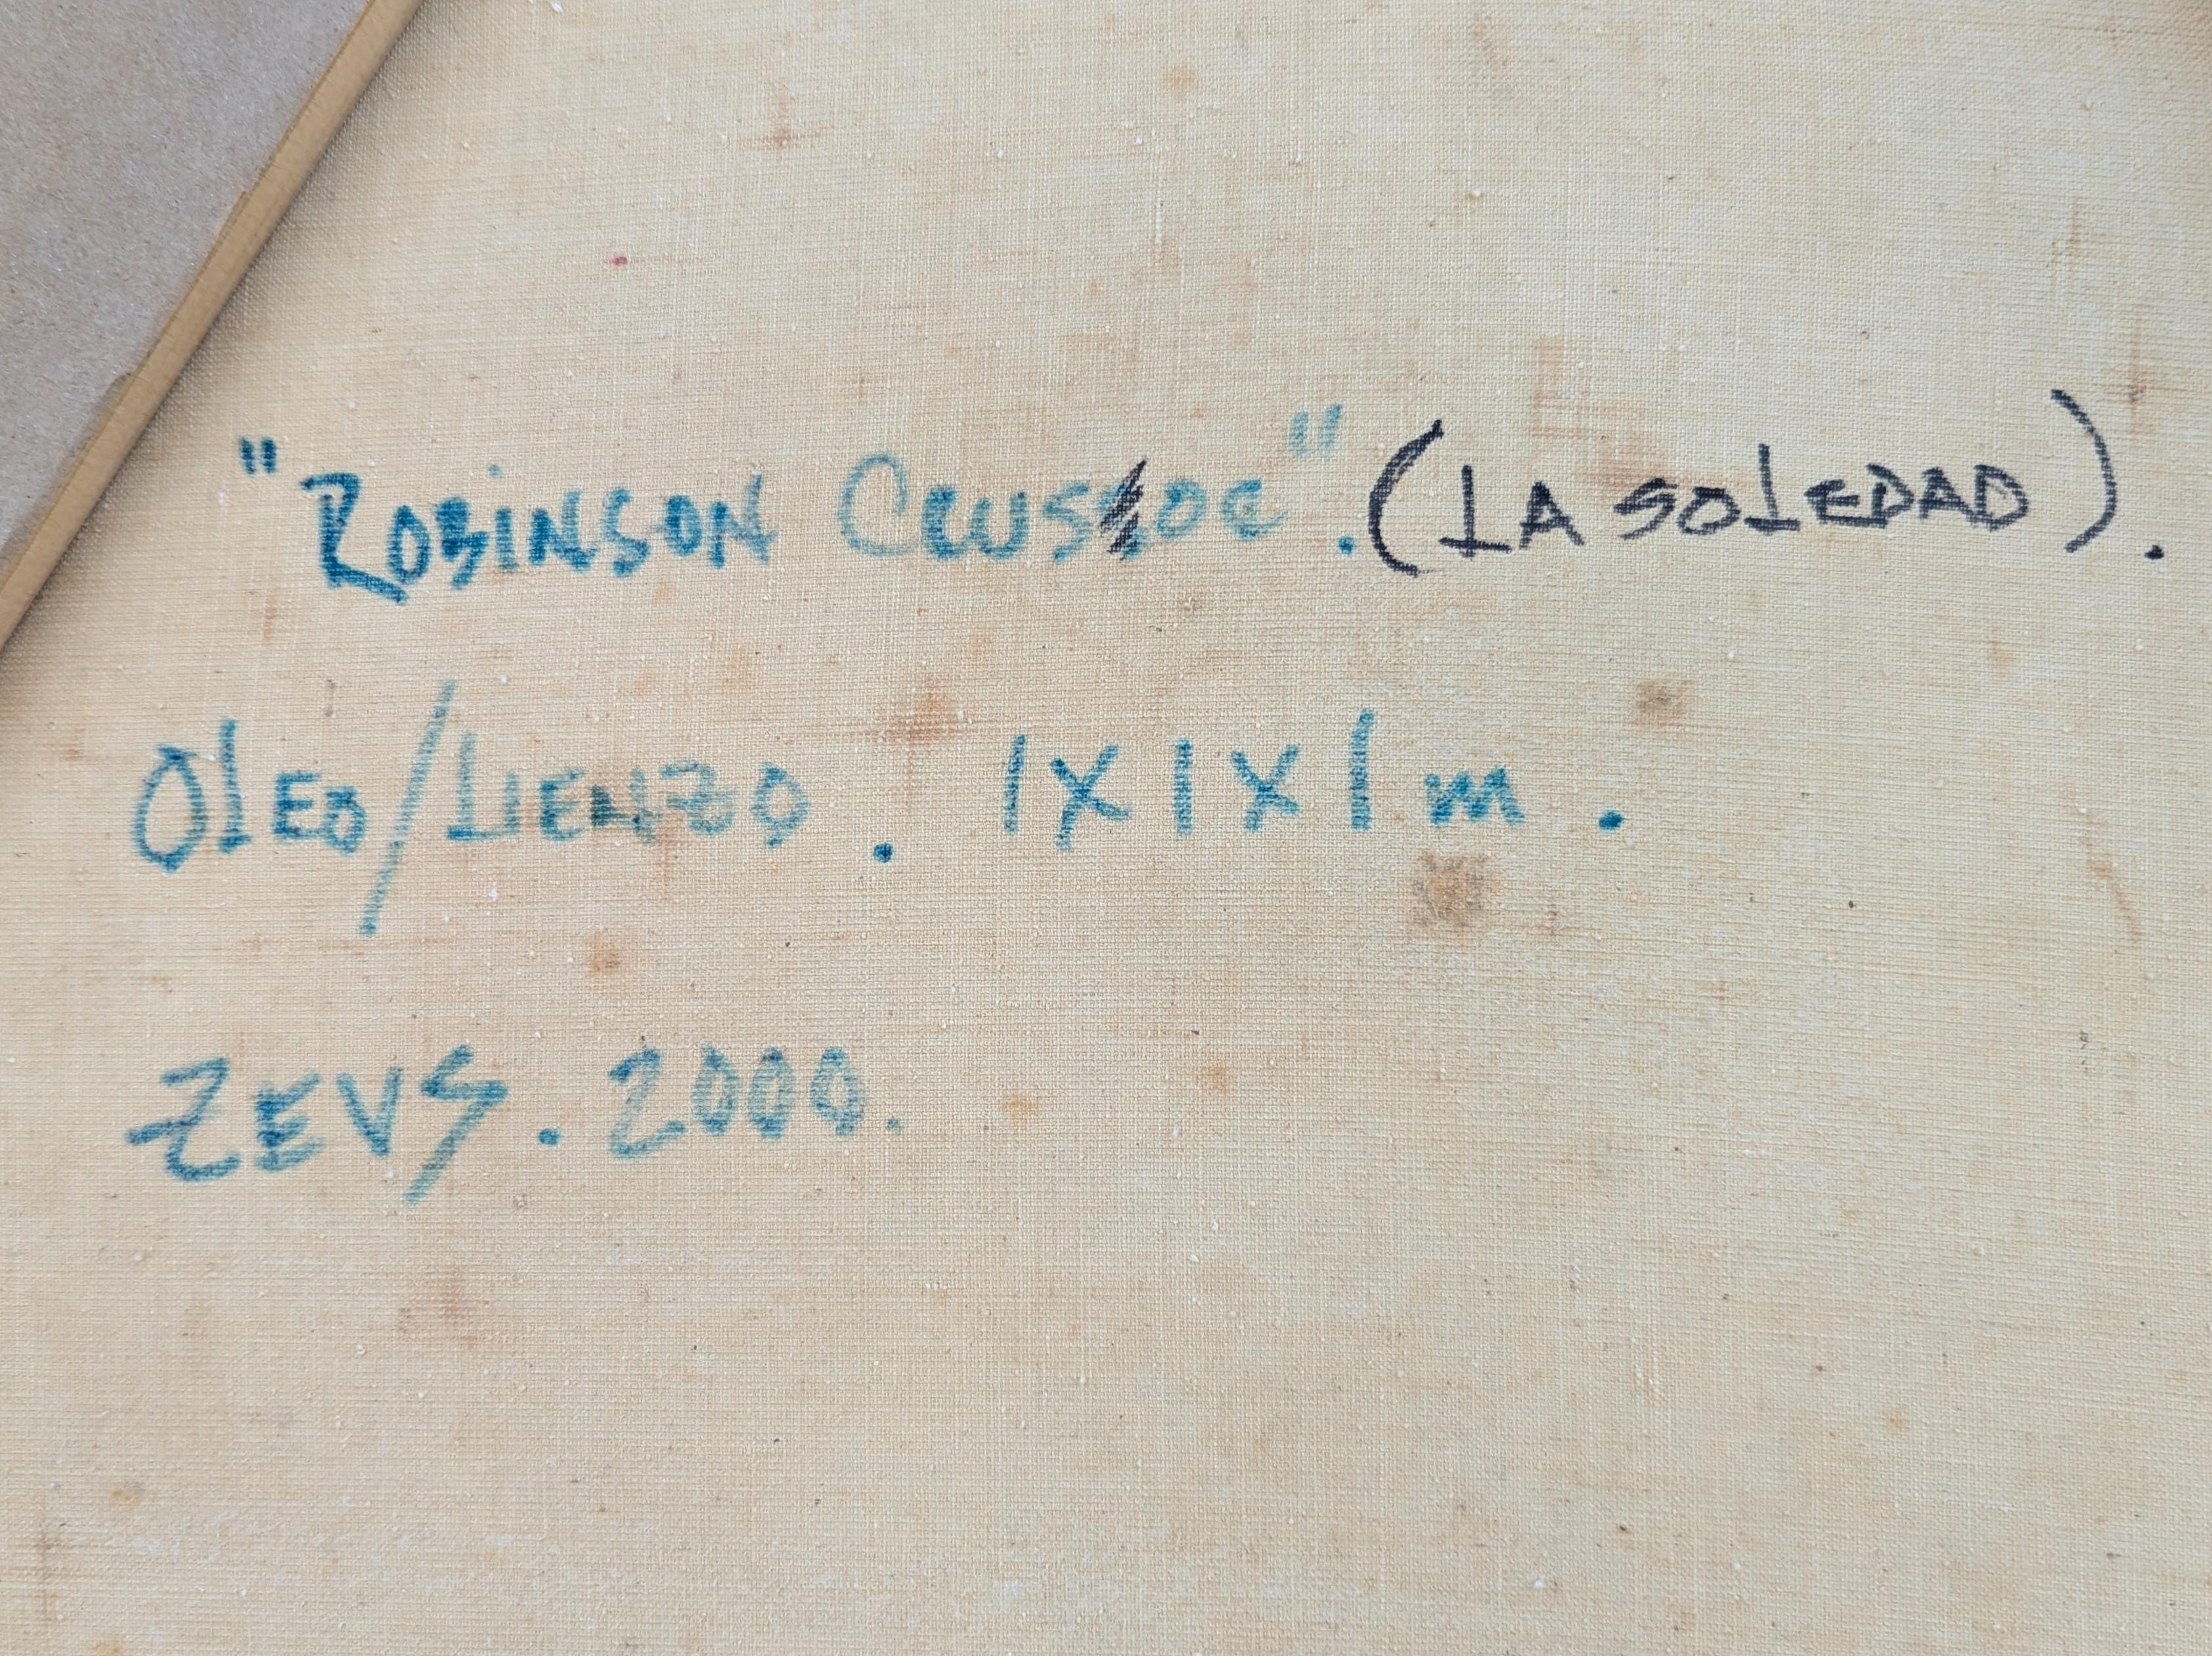 "ROBINSON CRUSOE". (LA SOLEDAD).
OLEO/LIENZO. 1X1X1m.
ZEVS. 2000.